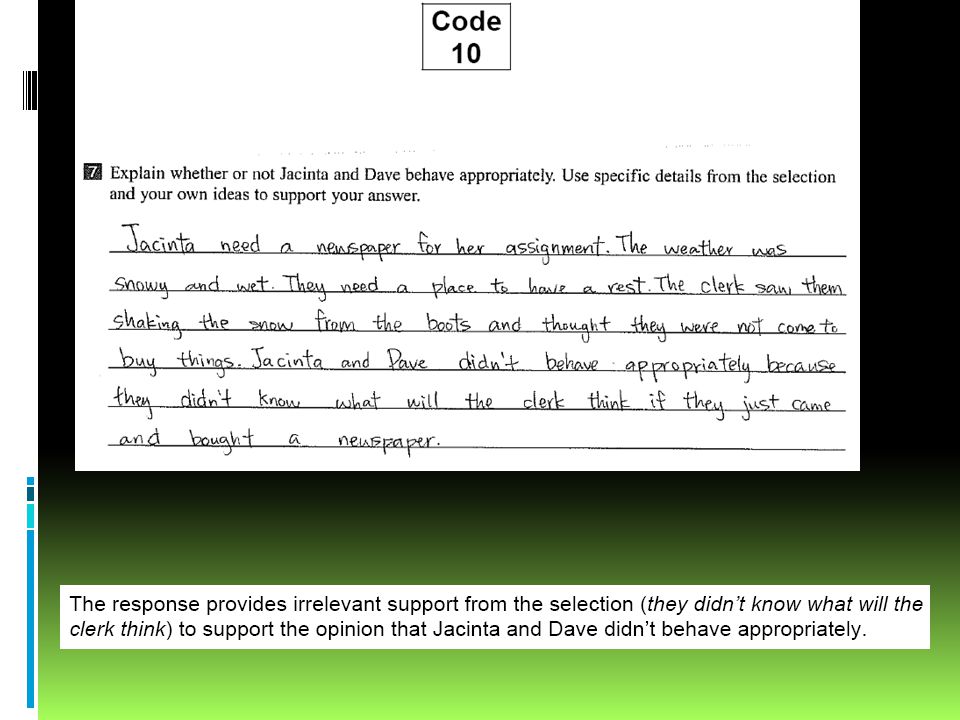 Code
10
7 Explain whether or not Jacinta and Dave behave appropriately. Use specific details from the selection
and your own ideas to support your answer.
Jacinta need a newspaper for her assignment. The weather was
snowy and wet. They need a place to have a rest. The clerk saw them
shaking the snow from the boots and thought they were not come to
buy things. Jacinta and Dave didn't behave appropriately because
they didn't know what will the clerk think if they just came
and bought a newspaper.
The response provides irrelevant support from the selection (they didn't know what will the
clerk think) to support the opinion that Jacinta and Dave didn't behave appropriately.